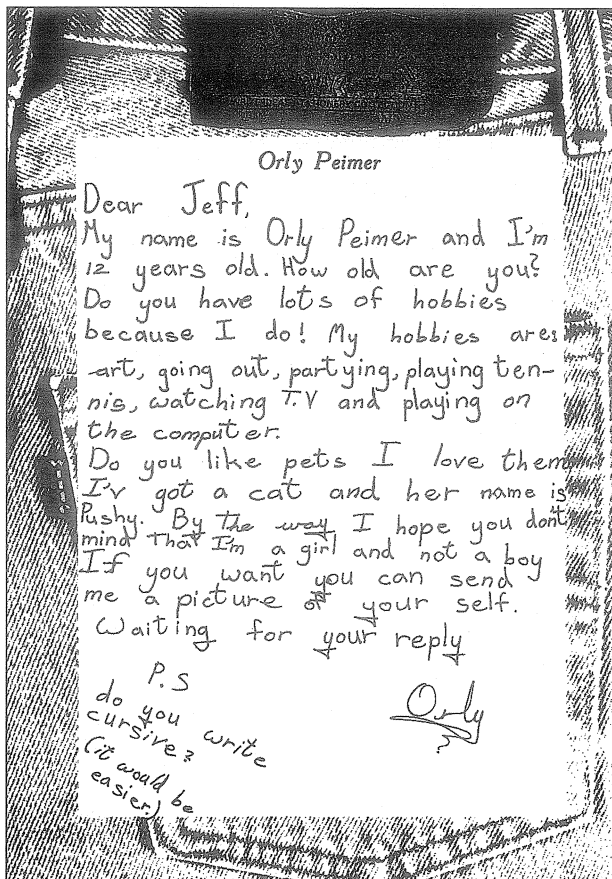 Orly Peimer
Dear Jeff,
My name is Orly Peimer and I'm
12 years old. How old are you?
Do you have lots of hobbies
because I do! My hobbies are:
art, going out, partying, playing ten-
nis, watching T.V and playing on
the computer.
Do you like pets I love them
I'v got a cat and her name is
Pushy. By the way I hope you don't
mind that I'm a girl and not a boy
If you want you can send
me a picture of your self.
Waiting for your reply
P.S
do you write
cursive?
(it would be
easier.)
Orly